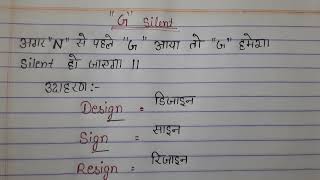 "G" Silent
अगर "N" से पहले "G" आया तो "G" हमेशा
Silent हो जाएगा ।।
उदाहरण:-
Design = डिजाइन
Sign = साइन
Resign = रिजाइन